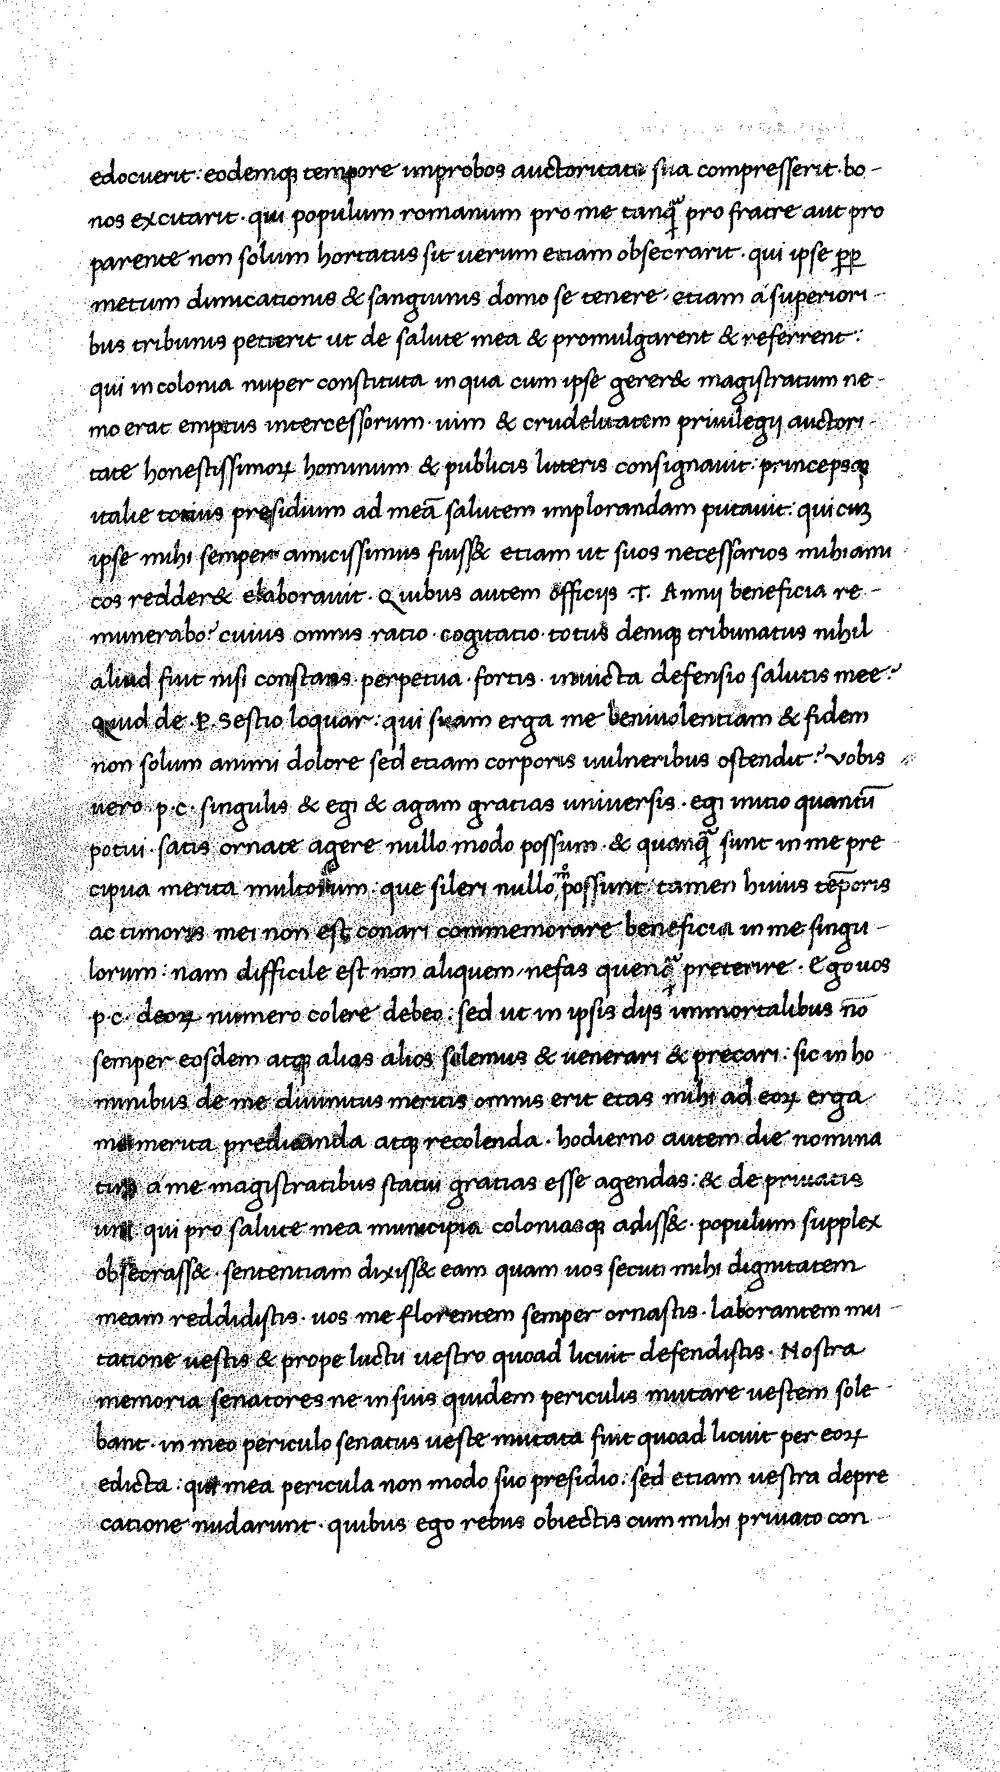 edocuerit· eodemqꝫ tempore improbos auctoritate sua compresserit· bo-
nos excitarit· qui populum romanum pro me tanqᷓ pro fratre aut pro
parente non solum hortatus sit uerum etiam obsecrarit· qui ipse ꝓꝑ
metum dimicationis & sanguinis domo se tenere· etiam a superiori-
bus tribunis petierit ut de salute mea & promulgarent & referrent:
qui in colonia nuper constituta in qua cum ipse gerer& magistratum ne-
mo erat emptus intercessorum· uim & crudelitatem priuilegij auctori-
tate honestissimoꝝ hominum & publicis litteris consignauit: princepsqꝫ
italie totius presidium ad meā salutem implorandam putauit: qui cuꝫ
ipse mihi semper amicissimus fuiss& etiam ut suos necessarios mihi ami
cos redder& elaborauit· Quibus autem officijs ·T· Annij beneficia re-
munerabo? cuius omnis ratio· cogitatio· totus deniqꝫ tribunatus nihil
aliud fuit nisi constans perpetua· fortis· inuicta defensio salutis mee?
Quid de ·P· Sestio loquar: qui suam erga me beniuolentiam & fidem
non solum animi dolore sed etiam corporis uulneribus ostendit? Vobis
uero ·p·c· singulis & egi & agam gratias uniuersis· egi initio quantū
potui· satis ornate agere nullo modo possum· & quanqᷓ sunt in me pre
cipua merita multorum· que sileri nullo mº possunt: tamen huius tēporis
ac timoris mei non est conari commemorare beneficia in me singu-
lorum: nam difficile est non aliquem, nefas quenqᷓ preterire· Ego uos
·p·c· deoꝝ numero colere debeo: sed ut in ipsis diis immortalibus nō
semper eosdem atqꝫ alias alios solemus & uenerari & precari: sic in ho
minibus de me diuinitus meritis omnis erit etas mihi ad eoꝝ erga
me merita predicanda atqꝫ recolenda· hodierno autem die nomina
tim a me magistratibus statui gratias esse agendas: & de priuatis
uni qui pro salute mea municipia coloniasqꝫ adiss&· populum supplex
obsecrass&· sententiam dixiss& eam quam uos secuti mihi dignitatem
meam reddidistis· uos me florentem semper ornastis· laborantem mu-
tatione uestis & prope luctu uestro quoad licuit defendistis· Nostra
memoria senatores ne in suis quidem periculis mutare uestem sole-
bant· in meo periculo senatus ueste mutata fuit quoad licuit per eoꝝ
edicta: qui mea pericula non modo suo presidio: sed etiam uestra depre
catione nudarunt· quibus ego rebus obiectis cum mihi priuato con-